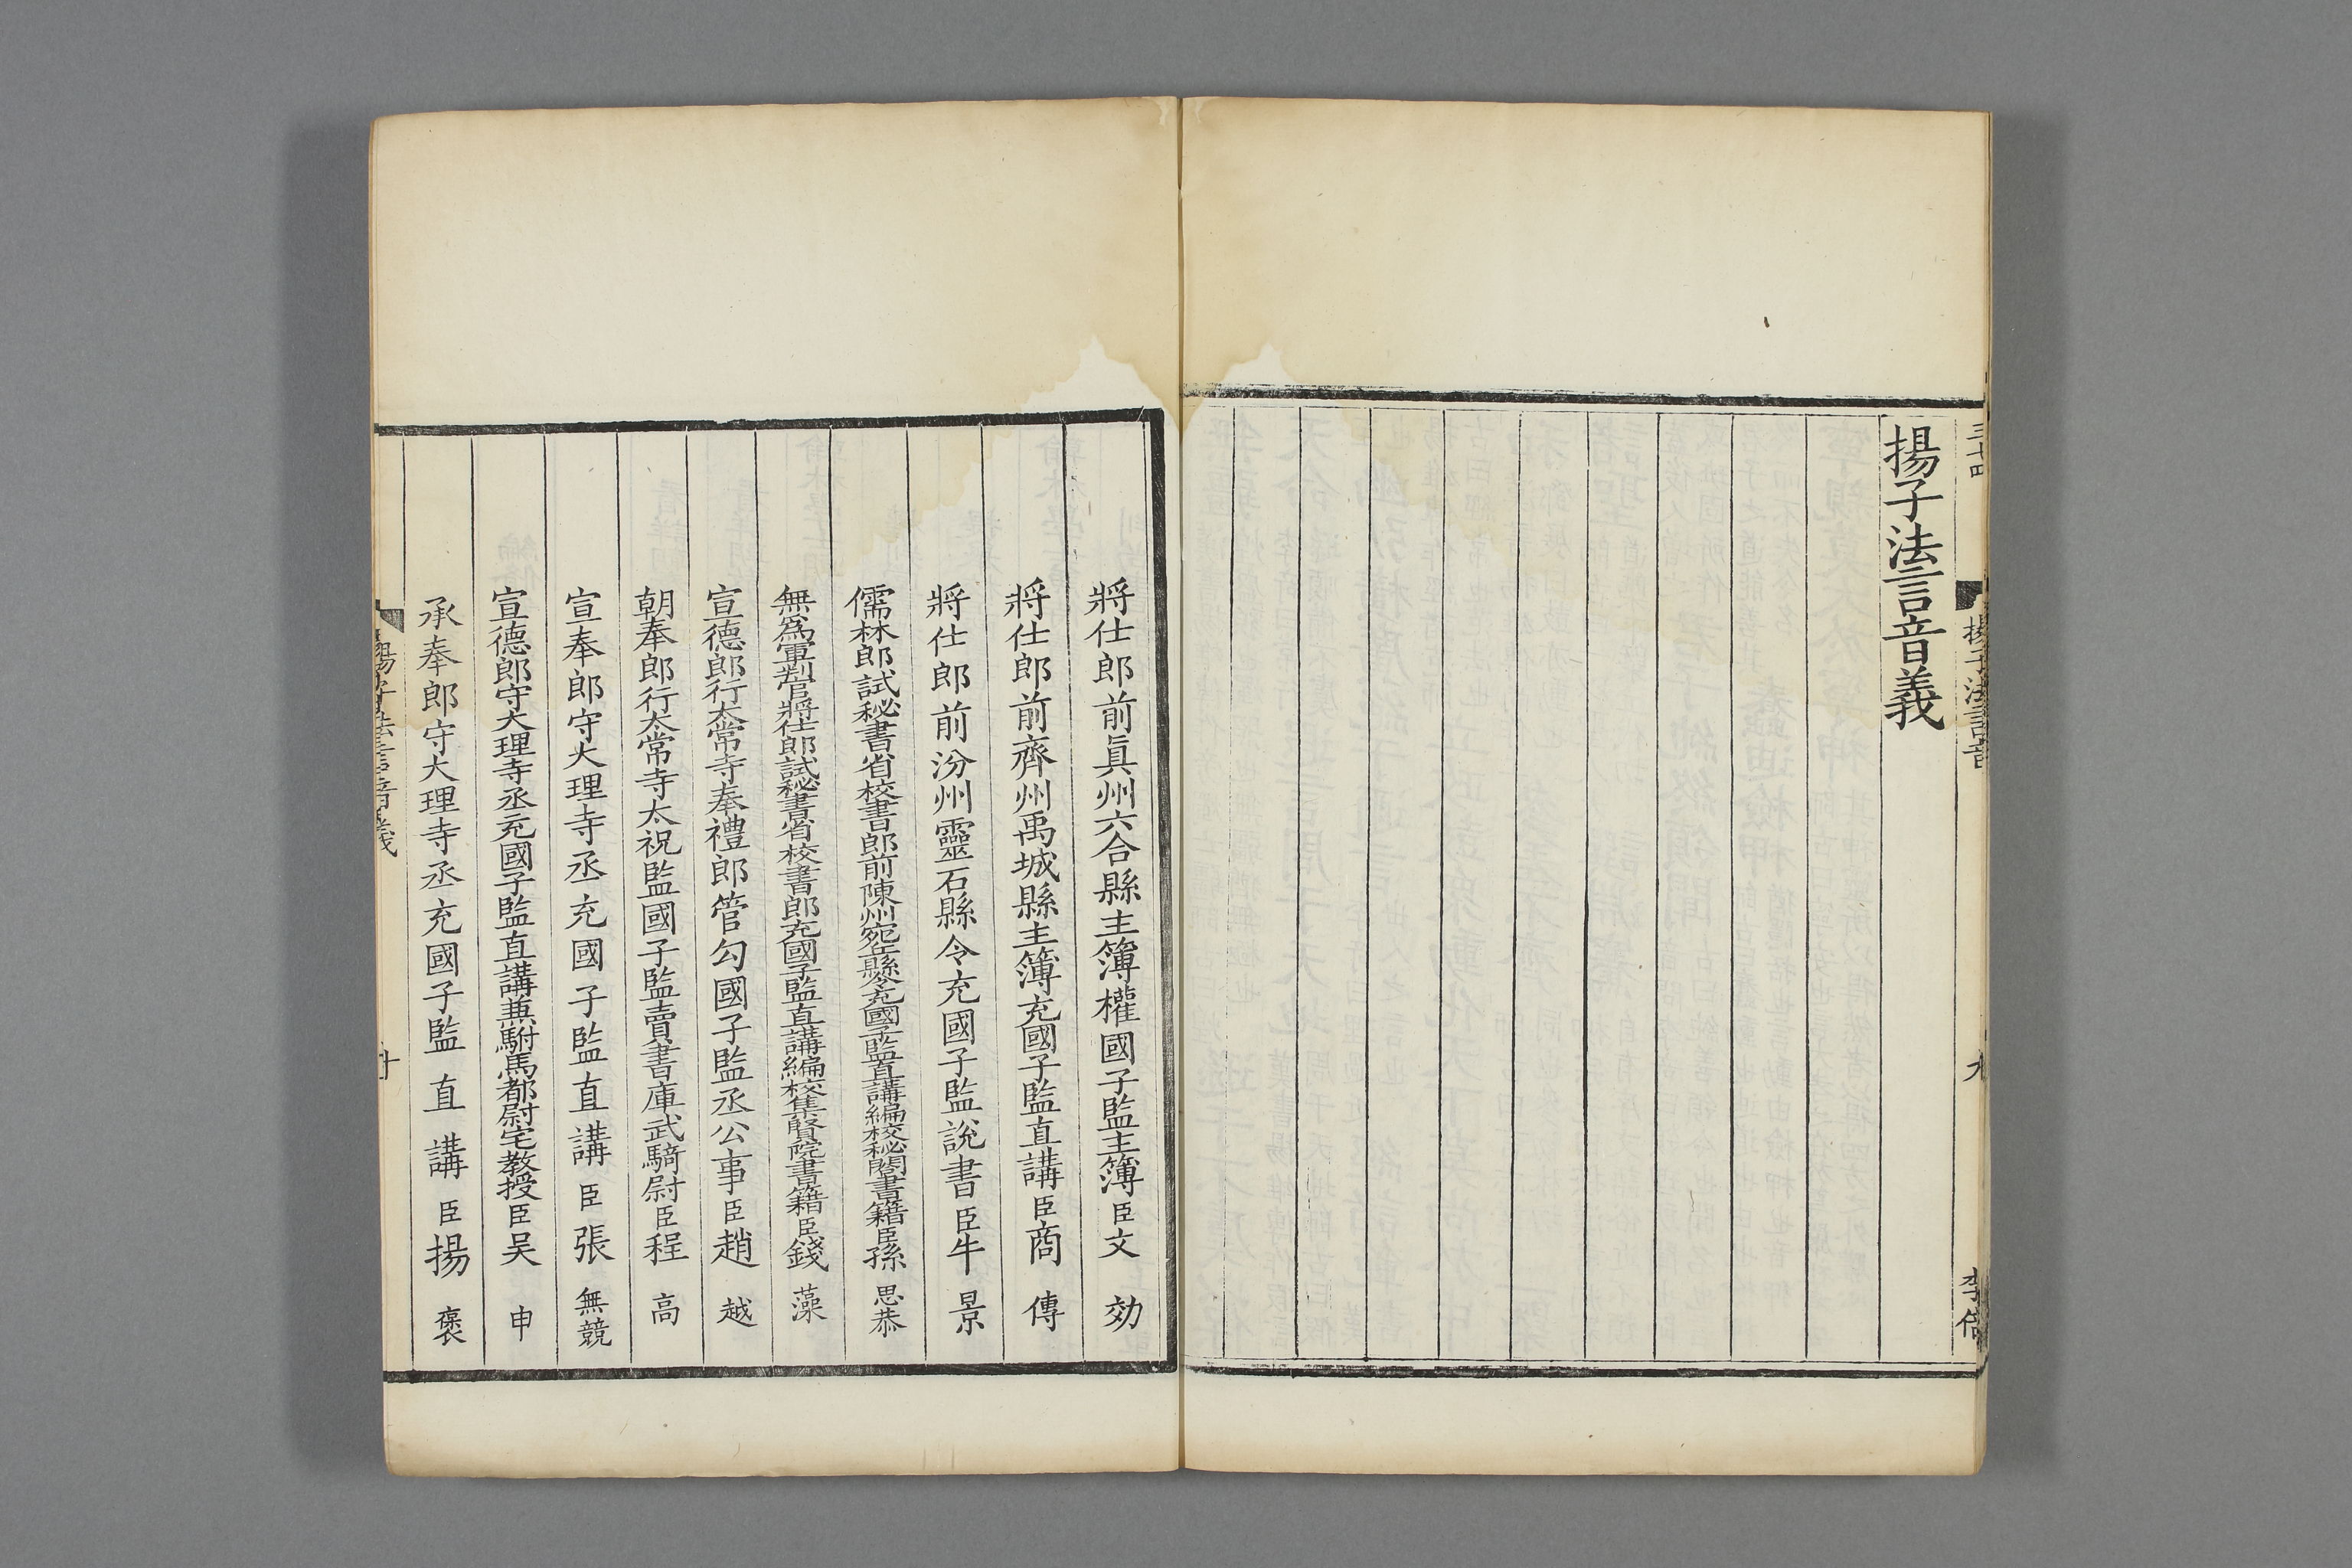 三七四
揚子法言音
九
李倍
揚子法言音義
將仕郎前眞州六合縣主簿權國子監主簿臣文効
將仕郎前齊州禹城縣主簿充國子監直講臣商傳
將仕郎前汾州靈石縣令充國子監說書臣牛景
儒林郎試秘書省校書郎前陳州宛丘縣令充國子監直講編校秘閣書籍臣孫思恭
無爲軍判官將仕郎試秘書省校書郎充國子監直講編校集賢院書籍臣錢藻
宣德郎行太常寺奉禮郎管勾國子監丞公事臣趙越
朝奉郎行太常寺太祝監國子監賣書庫武騎尉臣程高
宣奉郎守大理寺丞充國子監直講臣張無競
宣德郎守大理寺丞充國子監直講兼駙馬都尉宅教授臣吴申
承奉郎守大理寺丞充國子監直講臣揚褒
揚子法言音義
十